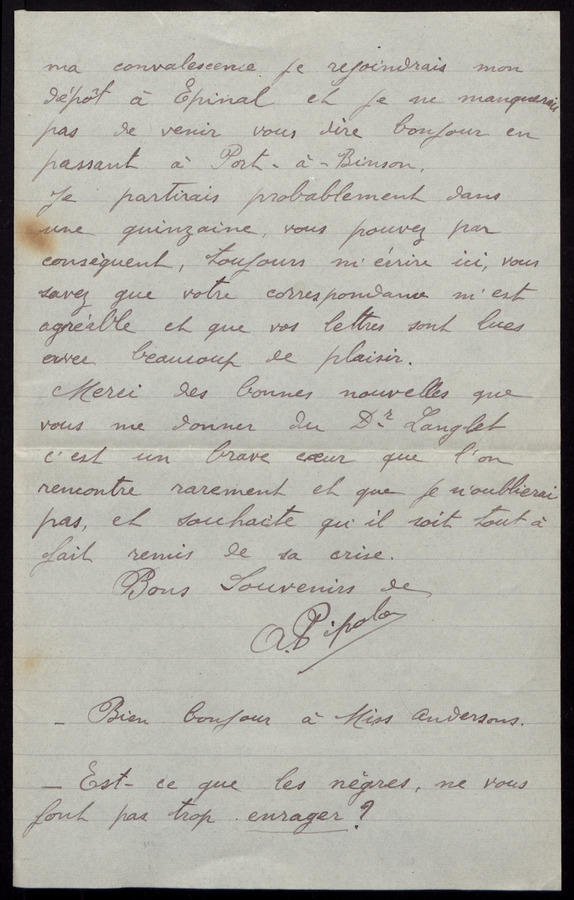 ma convalescence je rejoindrais mon
dépôt à Épinal et je ne manquerais
pas de venir vous dire bonjour en
passant à Port-à-Binson.
Je partirais probablement dans
une quinzaine, vous pouvez par
conséquent, toujours m'écrire ici, vous
savez que votre correspondance m'est
agréable et que vos lettres sont lues
avec beaucoup de plaisir.
Merci des bonnes nouvelles que
vous me donner du Dr Langlet
c'est un brave cœur que l'on
rencontre rarement et que je n'oublierai
pas, et souhaite qu'il soit tout à
fait remis de sa crise.
Bons Souvenirs de
A. Pipolo
- Bien bonjour à Miss Andersons.
- Est-ce que les nègres, ne vous
font pas trop enrager ?